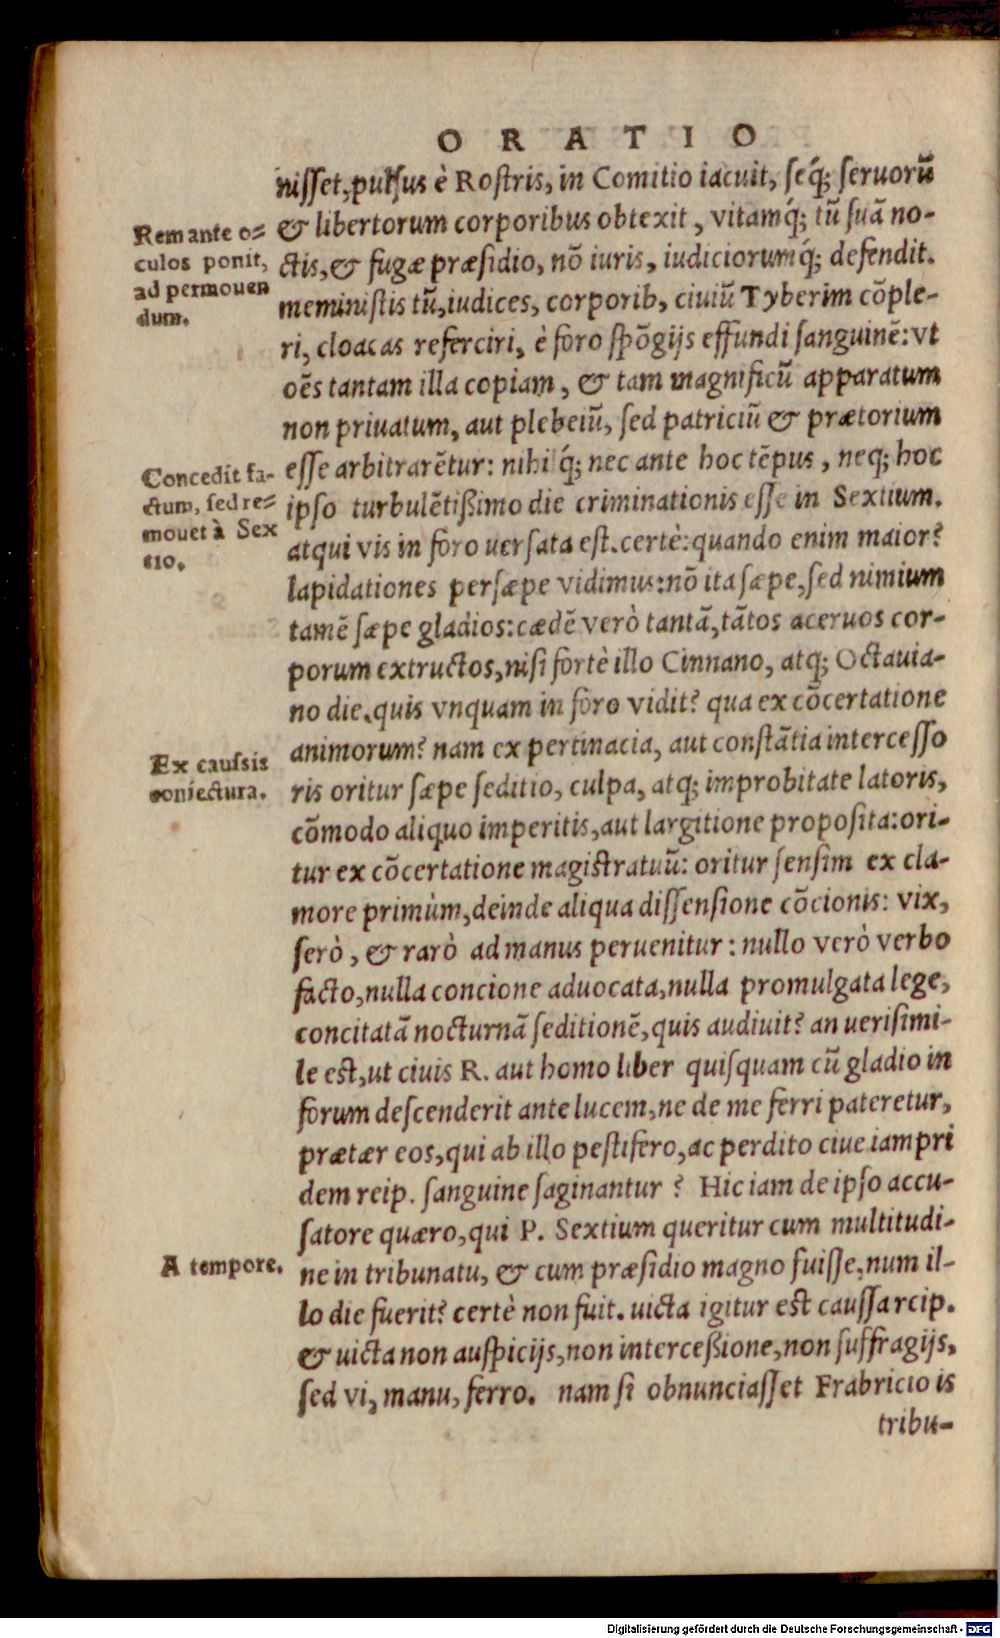 ORATIO
nisset, pulsus è Rostris, in Comitio iacuit, seq́; seruorũ
& libertorum corporibus obtexit, vitamq́; tũ suã no-
ctis, & fugæ præsidio, nõ iuris, iudiciorumq́; defendit.
meministis tũ, iudices, corporib, ciuiũ Tyberim cõple-
ri, cloacas referciri, è foro spõgijs effundi sanguinẽ: vt
oẽs tantam illa copiam, & tam magnificũ apparatum
non priuatum, aut plebeiũ, sed patriciũ & prætorium
esse arbitrarẽtur: nihil q́; nec ante hoc tẽpus, neq; hoc
ipso turbulẽtißimo die criminationis esse in Sextium.
atqui vis in foro uersata est. certè: quando enim maior?
lapidationes persæpe vidimus: nõ ita sæpe, sed nimium
tamẽ sæpe gladios: cædẽ verò tantã, tãtos aceruos cor-
porum extructos, nisi fortè illo Cinnano, atq; Octauia-
no die. quis vnquam in foro vidit? qua ex cõcertatione
animorum? nam ex pertinacia, aut constãtia intercesso
ris oritur sæpe seditio, culpa, atq; improbitate latoris,
cõmodo aliquo imperitis, aut largitione proposita: ori-
tur ex cõcertatione magistratuũ: oritur sensim ex cla-
more primùm, deinde aliqua dissensione cõcionis: vix,
serò, & rarò ad manus peruenitur: nullo verò verbo
facto, nulla concione aduocata, nulla promulgata lege,
concitatã nocturnã seditionẽ, quis audiuit? an uerisimi-
le est, ut ciuis R. aut homo liber quisquam cũ gladio in
forum descenderit ante lucem, ne de me ferri pateretur,
prætær eos, qui ab illo pestifero, ac perdito ciue iampri
dem reip. sanguine saginantur? Hic iam de ipso accu-
satore quæro, qui P. Sextium queritur cum multitudi-
ne in tribunatu, & cum præsidio magno fuisse, num il-
lo die fuerit? certè non fuit. uicta igitur est caussa rcip.
& uicta non auspicijs, non interceßione, non suffragijs,
sed vi, manu, ferro. nam si obnunciasset Frabricio is
tribu-
Rem ante o-
culos ponit,
ad permouen
dum.
Concedit fa-
ctum, sed re-
mouet à Sex
tio.
Ex caussis
coniectura.
A tempore.
Digitalisierung gefördert durch die Deutsche Forschungsgemeinschaft - DFG